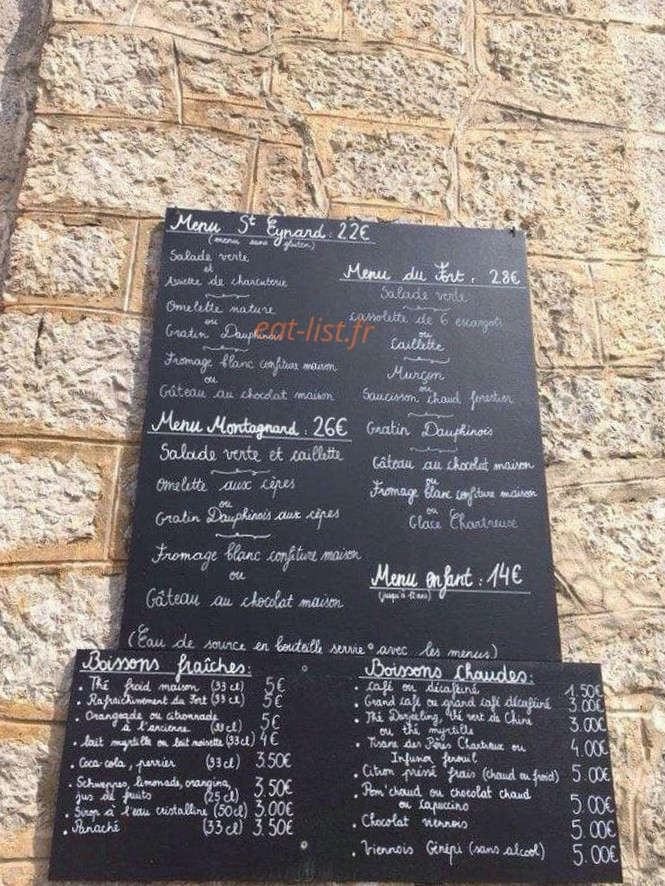 Menu St Eynard : 22€
(menu sans gluten)
Salade verte
et
Assiette de charcuterie
Omelette nature
ou
Gratin Dauphinois
Fromage blanc confiture maison
ou
Gâteau au chocolat maison
Menu Montagnard : 26€
Salade verte et caillette
Omelette aux cèpes
ou
Gratin Dauphinois aux cèpes
Fromage blanc confiture maison
ou
Gâteau au chocolat maison
Menu du Fort : 28€
Salade verte
cassolette de 6 escargots
ou
Caillette
Murçon
ou
Saucisson chaud forestier
Gratin Dauphinois
Gâteau au chocolat maison
ou
Fromage blanc confiture maison
ou
Glace Chartreuse
Menu enfant : 14€
(jusqu'à 12 ans)
(Eau de source en bouteille servie avec les menus)
Boissons fraîches :
• Thé froid maison (33 cl) 5€
• Rafraîchiment du Fort (33 cl) 5€
• Orangeade ou citronnade
à l'ancienne (33 cl) 5€
• lait myrtille ou lait noisette (33 cl) 4€
• Coca-cola, perrier (33 cl) 3.50€
• Schweppes, limonade, orangina,
jus de fruits (25 cl) 3.50€
• Sirop à l'eau cristalline (50 cl) 3.00€
• Panaché (33 cl) 3.50€
Boissons Chaudes :
• Café ou décaféiné 1.50€
• Grand café ou grand café décaféiné 3.00€
• Thé Darjeeling, thé vert de Chine
ou thé myrtille 3.00€
• Tisane des Pères Chartreux ou
Infusion fenouil 4.00€
• Citron pressé frais (chaud ou froid) 5.00€
• Pom'chaud ou chocolat chaud
ou Capuccino 5.00€
• Chocolat viennois 5.00€
• Viennois Génépi (sans alcool) 5.00€
eat-list.fr